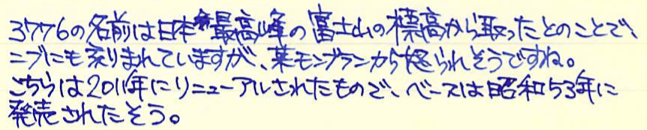 3776の名前は日本最高峰の富士山の標高から取ったとのことで、
ニブにも刻まれていますが、某モンブランから怒られそうですね。
こちらは2011年にリニューアルされたもので、ベースは昭和53年に
発売されたそう。